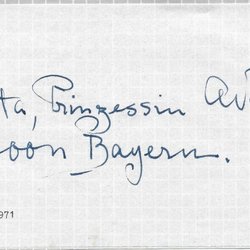 ta, Prinzessin
von Bayern.
971